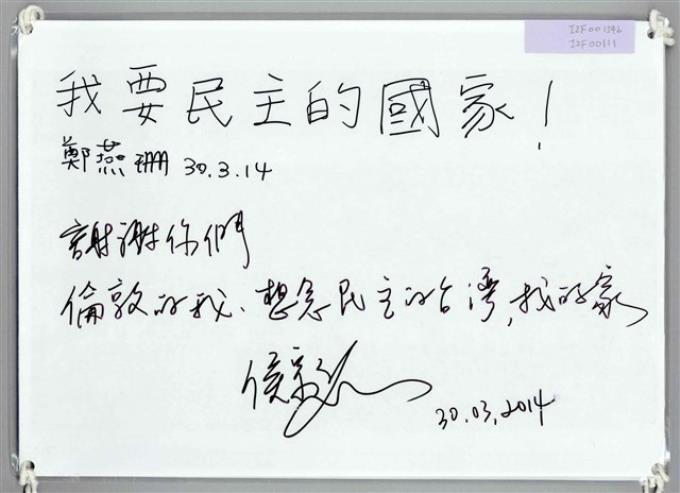 I2F001346
I2F00111
我要民主的國家！
鄭燕珊 30.3.14
謝謝你們
倫敦的我、想念民主的台灣,我的家
侯
30.03.2014